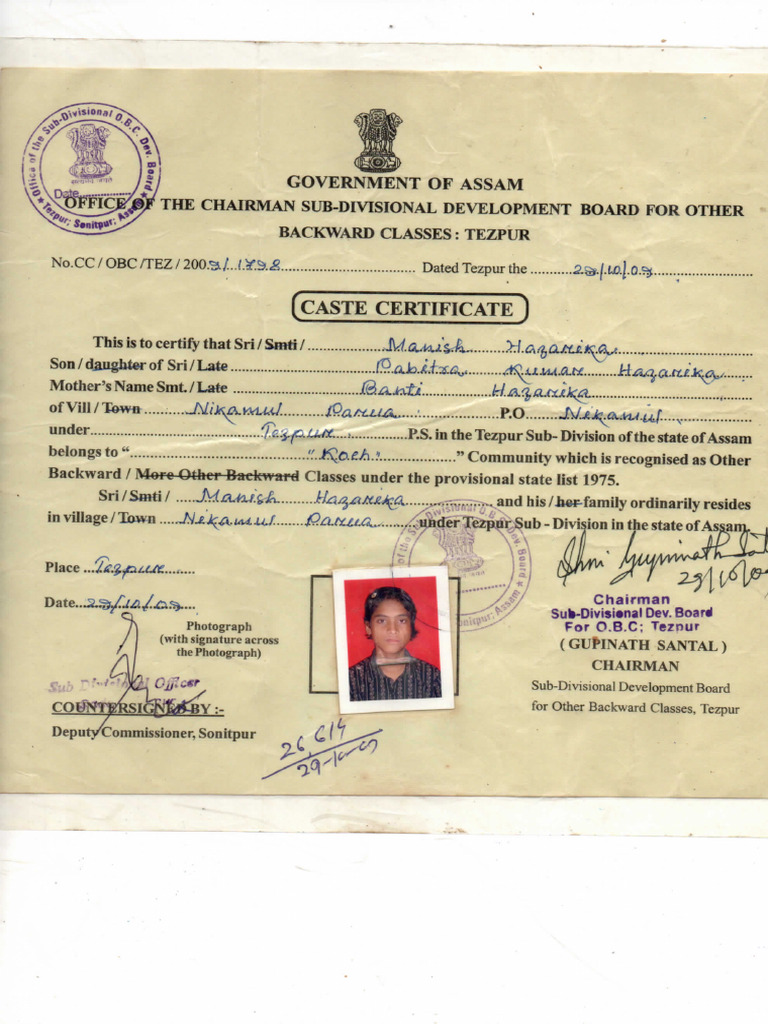 Office of the Sub-Divisional O.B.C. Dev. Board
Date
★ Tezpur; Sonitpur; Assam ★
GOVERNMENT OF ASSAM
OFFICE OF THE CHAIRMAN SUB-DIVISIONAL DEVELOPMENT BOARD FOR OTHER
BACKWARD CLASSES : TEZPUR
No.CC / OBC /TEZ / 2009/1798 Dated Tezpur the 29/10/09
CASTE CERTIFICATE
This is to certify that Sri / Smti / Manish Hazarika
Son / daughter of Sri / Late Pabitra Kumar Hazarika
Mother's Name Smt. / Late Banti Hazarika
of Vill / Town Nikamul Parua P.O Nikamul
under Tezpur P.S. in the Tezpur Sub- Division of the state of Assam
belongs to " "Koch" " Community which is recognised as Other
Backward / More Other Backward Classes under the provisional state list 1975.
Sri / Smti / Manish Hazarika and his / her family ordinarily resides
in village / Town Nikamul Parua under Tezpur Sub - Division in the state of Assam.
of the Sub-Divisional O.B.C. Dev. Board
Sonitpur; Assam
Place Tezpur
Shri Gupinath
29/10/09
Date 29/10/09
Chairman
Sub-Divisional Dev. Board
For O.B.C; Tezpur
Photograph
(with signature across
the Photograph)
( GUPINATH SANTAL )
CHAIRMAN
Sub-Divisional Development Board
for Other Backward Classes, Tezpur
Sub Divisional Officer
COUNTERSIGNED BY :-
Deputy Commissioner, Sonitpur
26,614